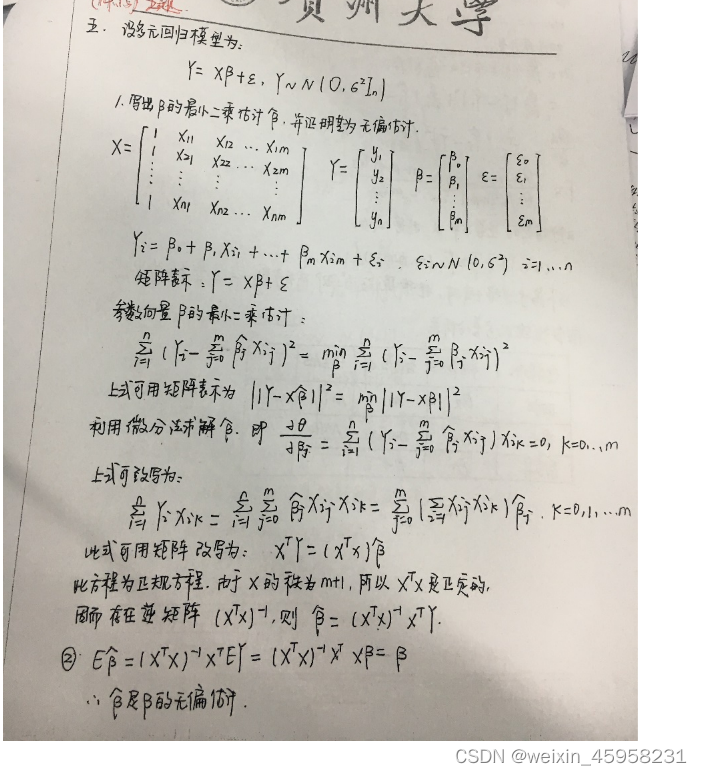 贵州大学
五. 设多元回归模型为:
Y = Xβ+ε, Y~N(0, σ²In)
1. 写出β的最小二乘估计β̂, 并证明其为无偏估计.
X = [1 X11 X12 … X1m; 1 X21 X22 … X2m; ⋮ ⋮ ⋮ ⋮; 1 Xn1 Xn2 … Xnm] Y = [y1; y2; ⋮; yn] β = [β0; β1; ⋮; βm] ε = [ε0; ε1; ⋮; εm]
Yi = β0 + β1Xi1 + … + βmXim + εi . εi~N(0,σ²) i=1,…n
矩阵表示: Y = Xβ + ε
参数向量β的最小二乘估计:
∑_{i=1}^{n} (Yi - ∑_{j=0}^{m} β̂j Xij)² = min_β ∑_{i=1}^{n} (Yi - ∑_{j=0}^{m} βj Xij)²
上式可用矩阵表示为 ||Y-Xβ̂||² = min_β ||Y-Xβ||²
利用微分法求解β̂. 即 ∂θ/∂βj = ∑_{i=1}^{n} (Yi - ∑_{j=0}^{m} β̂j Xij) Xik = 0, k=0,…,m
上式可改写为:
∑_{i=1}^{n} Yi Xik = ∑_{i=1}^{n} ∑_{j=0}^{m} β̂j Xij Xik = ∑_{j=0}^{m} (∑_{i=1} Xij Xik) β̂j . k=0,1,…m
此式可用矩阵改写为: XᵀY = (XᵀX)β̂
此方程为正规方程. 由于X的秩为m+1, 所以XᵀX是正定的,
因而存在逆矩阵 (XᵀX)⁻¹, 则 β̂ = (XᵀX)⁻¹XᵀY.
② Eβ̂ = (XᵀX)⁻¹XᵀEY = (XᵀX)⁻¹Xᵀ Xβ = β
∴ β̂是β的无偏估计.
CSDN @weixin_45958231